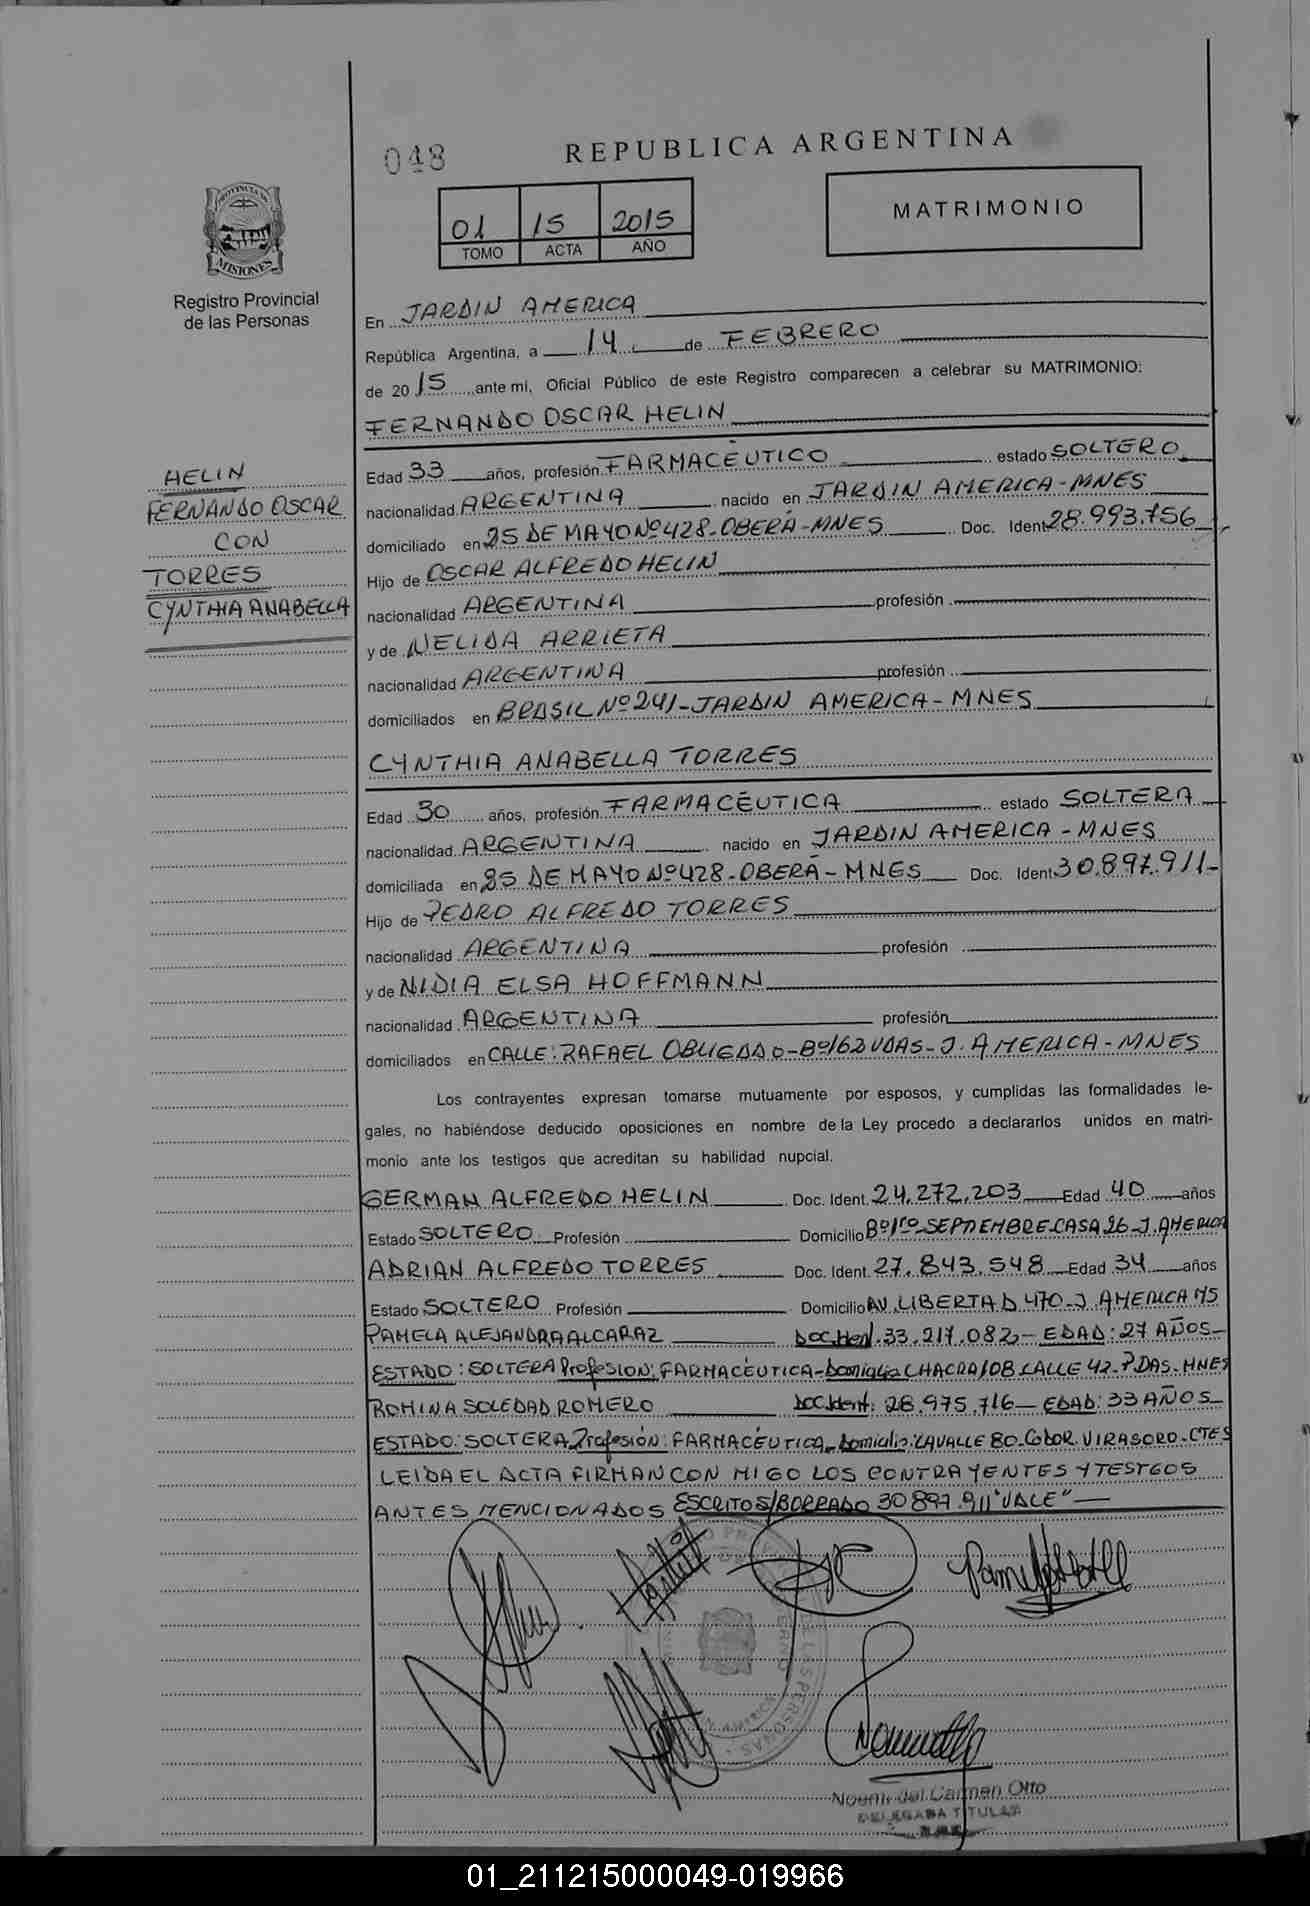 048
REPUBLICA ARGENTINA
PROVINCIA DE
MISIONES
Registro Provincial
de las Personas
01 15 2015
TOMO ACTA AÑO
MATRIMONIO
En JARDIN AMERICA
República Argentina, a 14 de FEBRERO
de 2015 ante mí, Oficial Público de este Registro comparecen a celebrar su MATRIMONIO:
FERNANDO OSCAR HELIN
HELIN
FERNANDO OSCAR
CON
TORRES
CYNTHIA ANABELLA
Edad 33 años, profesión FARMACÉUTICO estado SOLTERO
nacionalidad ARGENTINA nacido en JARDIN AMERICA-MNES
domiciliado en 25 DE MAYO Nº 428-OBERÁ-MNES Doc. Ident 28.993.756
Hijo de OSCAR ALFREDO HELIN
nacionalidad ARGENTINA profesión
y de NELIDA ARRIETA
nacionalidad ARGENTINA profesión
domiciliados en BRASIL Nº 241-JARDIN AMERICA-MNES
CYNTHIA ANABELLA TORRES
Edad 30 años, profesión FARMACÉUTICA estado SOLTERA
nacionalidad ARGENTINA nacido en JARDIN AMERICA-MNES
domiciliada en 25 DE MAYO Nº 428-OBERÁ-MNES Doc. Ident 30.897.911-
Hijo de PEDRO ALFREDO TORRES
nacionalidad ARGENTINA profesión
y de NIDIA ELSA HOFFMANN
nacionalidad ARGENTINA profesión
domiciliados en CALLE: RAFAEL OBLIGADO-Bº 162 VDAS-J. AMERICA-MNES
Los contrayentes expresan tomarse mutuamente por esposos, y cumplidas las formalidades le-
gales, no habiéndose deducido oposiciones en nombre de la Ley procedo a declararlos unidos en matri-
monio ante los testigos que acreditan su habilidad nupcial.
GERMAN ALFREDO HELIN Doc. Ident. 24.272.203 Edad 40 años
Estado SOLTERO Profesión Domicilio Bº 1ro SEPTIEMBRE CASA 26-J. AMERICA
ADRIAN ALFREDO TORRES Doc. Ident. 27.843.548 Edad 34 años
Estado SOLTERO Profesión Domicilio AV. LIBERTAD 470-J. AMERICA MS
PAMELA ALEJANDRA ALCARAZ Doc. Ident. 33.217.082- EDAD: 27 AÑOS-
ESTADO: SOLTERA Profesion: FARMACÉUTICA-Domicilio CHACRA 108 CALLE 42-PDAS-MNES
ROMINA SOLEDAD ROMERO Doc. Ident: 28.975.716- EDAD: 33 AÑOS-
ESTADO: SOLTERA Profesión: FARMACÉUTICA-Domicilio: LAVALLE 80-GobDR. VIRASORO-CTES
LEIDA EL ACTA FIRMAN CON MIGO LOS CONTRAYENTES Y TESTGOS
ANTES MENCIONADOS ESCRITOS/BORRADO 30897.911 "VALE"
Noemi del Carmen Otto
DELEGADA TITULAR
01_211215000049-019966